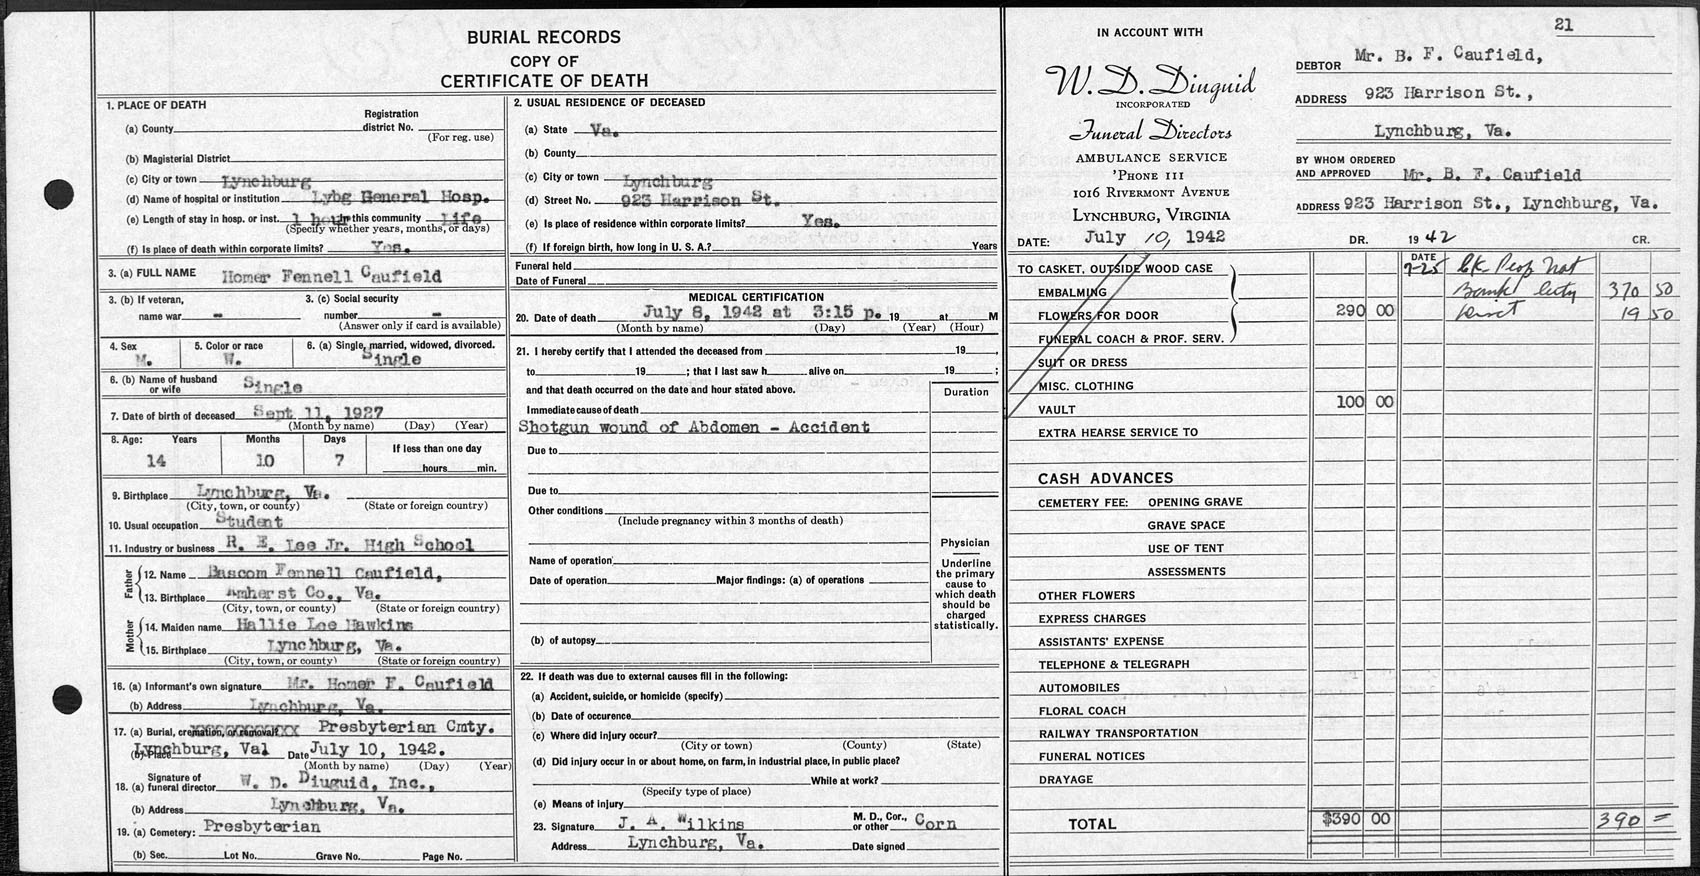 BURIAL RECORDS
COPY OF
CERTIFICATE OF DEATH
1. PLACE OF DEATH
Registration
(a) County
district No.
(For reg. use)
(b) Magisterial District
(c) City or town Lynchburg
(d) Name of hospital or institution Lybg General Hosp.
(e) Length of stay in hosp. or inst. 1 hour this community Life
(Specify whether years, months, or days)
(f) Is place of death within corporate limits? Yes.
3. (a) FULL NAME Homer Fennell Caufield
3. (b) If veteran, 3. (c) Social security
name war - number -
(Answer only if card is available)
4. Sex 5. Color or race 6. (a) Single, married, widowed, divorced.
M. W. Single
6. (b) Name of husband
or wife Single
7. Date of birth of deceased Sept 11, 1927
(Month by name) (Day) (Year)
8. Age: Years Months Days If less than one day
14 10 7 hours min.
9. Birthplace Lynchburg, Va.
(City, town, or county) (State or foreign country)
10. Usual occupation Student
11. Industry or business R. E. Lee Jr. High School
Father
12. Name Bascom Fennell Caufield,
13. Birthplace Amherst Co., Va.
(City, town, or county) (State or foreign country)
Mother
14. Maiden name Hallie Lee Hawkins
15. Birthplace Lynchburg, Va.
(City, town, or county) (State or foreign country)
16. (a) Informant's own signature Mr. Homer F. Caufield
(b) Address Lynchburg, Va.
17. (a) Burial, cremation, or removal? XXXXXXXXXXXX Presbyterian Cmty.
(b) Place Lynchburg, Val Date July 10, 1942.
(Month by name) (Day) (Year)
18. (a) Signature of funeral director W. D. Diuguid, Inc.,
(b) Address Lynchburg, Va.
19. (a) Cemetery: Presbyterian
(b) Sec. Lot No. Grave No. Page No.
2. USUAL RESIDENCE OF DECEASED
(a) State Va.
(b) County
(c) City or town Lynchburg
(d) Street No. 923 Harrison St.
(e) Is place of residence within corporate limits? Yes.
(f) If foreign birth, how long in U. S. A.? Years
Funeral held
Date of Funeral
MEDICAL CERTIFICATION
20. Date of death July 8, 1942 at 3:15 p. 19 at M
(Month by name) (Day) (Year) (Hour)
21. I hereby certify that I attended the deceased from 19 ,
to 19 ; that I last saw h alive on 19 ;
and that death occurred on the date and hour stated above.
Duration
Immediate cause of death
Shotgun wound of Abdomen - Accident
Due to
Due to
Other conditions
(Include pregnancy within 3 months of death)
Name of operation
Date of operation Major findings: (a) of operations
(b) of autopsy
Physician
Underline
the primary
cause to
which death
should be
charged
statistically.
22. If death was due to external causes fill in the following:
(a) Accident, suicide, or homicide (specify)
(b) Date of occurence
(c) Where did injury occur?
(City or town) (County) (State)
(d) Did injury occur in or about home, on farm, in industrial place, in public place?
While at work?
(Specify type of place)
(e) Means of injury
23. Signature J. A. Wilkins M. D., Cor., or other Corn
Address Lynchburg, Va. Date signed
IN ACCOUNT WITH
W. D. Diuguid
INCORPORATED
Funeral Directors
AMBULANCE SERVICE
'PHONE 111
1016 RIVERMONT AVENUE
LYNCHBURG, VIRGINIA
21
DEBTOR Mr. B. F. Caufield,
ADDRESS 923 Harrison St.,
Lynchburg, Va.
BY WHOM ORDERED
AND APPROVED Mr. B. F. Caufield
ADDRESS 923 Harrison St., Lynchburg, Va.
DATE: July 10, 1942 DR. 1942 CR.
DATE
TO CASKET, OUTSIDE WOOD CASE 7-25 Ck Peop Nat
EMBALMING Bank City 370 50
FLOWERS FOR DOOR 290 00 Disct 19 50
FUNERAL COACH & PROF. SERV.
SUIT OR DRESS
MISC. CLOTHING
VAULT 100 00
EXTRA HEARSE SERVICE TO
CASH ADVANCES
CEMETERY FEE: OPENING GRAVE
GRAVE SPACE
USE OF TENT
ASSESSMENTS
OTHER FLOWERS
EXPRESS CHARGES
ASSISTANTS' EXPENSE
TELEPHONE & TELEGRAPH
AUTOMOBILES
FLORAL COACH
RAILWAY TRANSPORTATION
FUNERAL NOTICES
DRAYAGE
TOTAL $390 00 390 =